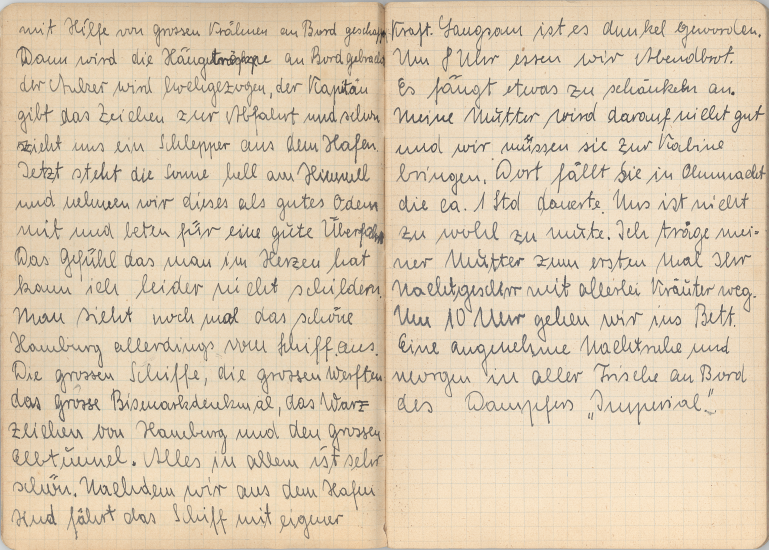 mit Hilfe von grossen Krähnen an Bord geschafft
Dann wird die Hängetreppe an Bord gebracht
der Anker wird hochgezogen, der Kapitän
gibt das Zeichen zur Abfahrt und schon
zieht uns ein Schlepper aus dem Hafen.
Jetzt steht die Sonne hell am Himmel
und nehmen wir dieses als gutes Odem
mit und beten für eine gute Überfahrt
Das Gefühl das man im Herzen hat
kann ich leider nicht schildern.
Man sieht noch mal das schöne
Hamburg allerdings vom Schiff aus.
Die grossen Schiffe, die grossen Werften
das grosse Bismarkdenkmal, das Warz-
zeichen von Hamburg und den grossen
Elbtunnel. Alles in allem ist sehr
schön. Nachdem wir aus dem Hafen
sind fährt das Schiff mit eigener
Kraft. Langsam ist es dunkel geworden.
Um 8 Uhr essen wir Abendbrot.
Es fängt etwas zu schaukeln an.
Meine Mutter wird darauf nicht gut
und wir müssen sie zur Kabine
bringen. Dort fällt sie in Ohnmacht
die ca. 1 Std dauerte. Uns ist nicht
zu wohl zu mute. Ich trage mei-
ner Mutter zum ersten mal Ihr
Nachtgeschirr mit allerlei Kräuter weg.
Um 10 Uhr gehen wir ins Bett.
Eine angenehme Nachtruhe und
morgen in aller Frische an Bord
des Dampfers „Imperial."